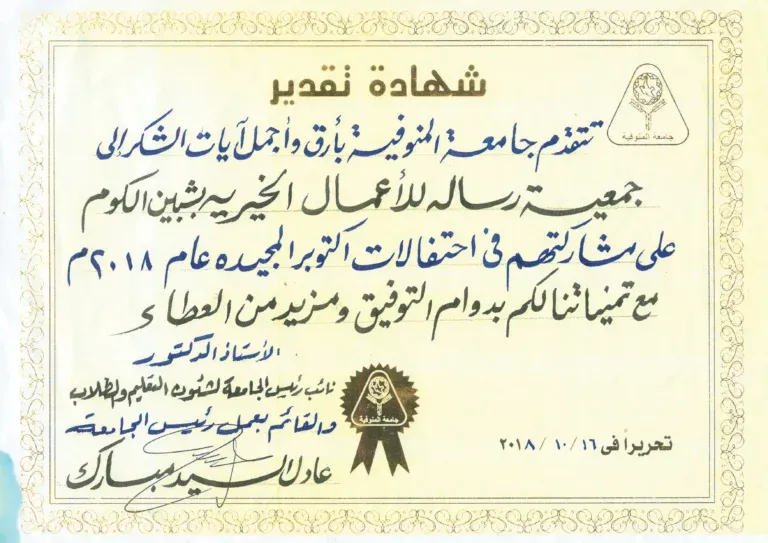 شهادة تقدير
جامعة المنوفية
تتقدم جامعة المنوفية بأرق وأجمل آيات الشكر إلى
جمعية رساله للأعمال الخيريه بشبين الكوم
على مشاركتهم في احتفالات اكتوبر المجيده عام ٢٠١٨م
مع تمنياتنا لكم بدوام التوفيق ومزيد من العطاء
الأستاذ الدكتور
نائب رئيس الجامعة لشئون التعليم والطلاب
والقائم بعمل رئيس الجامعة
عادل السيد مبارك
جامعة المنوفية
تحريراً في ١٦ / ١٠ / ٢٠١٨